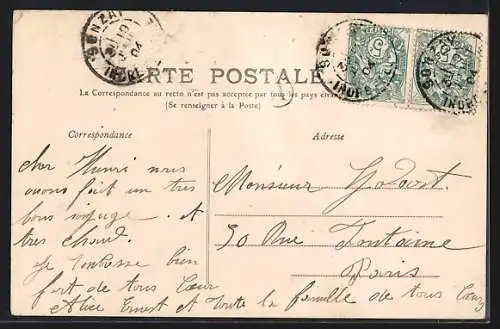 CARTE POSTALE
La Correspondance au recto n'est pas acceptée par tous les pays étran
(Se renseigner à la Poste)
Correspondance
Adresse
cher Henri nous
avons fait un tres
bon voyage. et
tres chaud.
Je t'embrasse bien
fort de tous Cœur
Alice Ernest et toute la famille de tous Cœur
Monsieur
50 Rue Fontaine
Paris